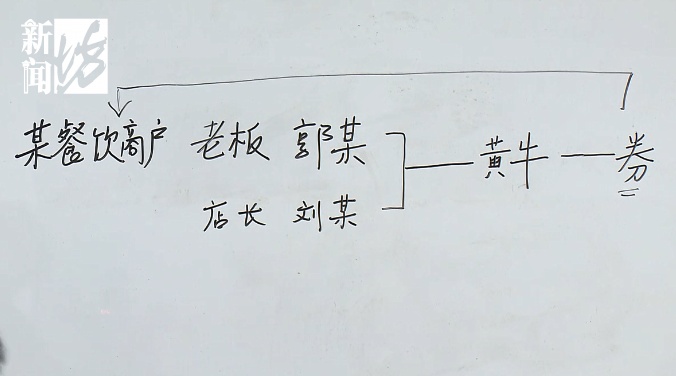 新闻坊
某餐饮商户 老板 郭某 黄牛 券
店长 刘某